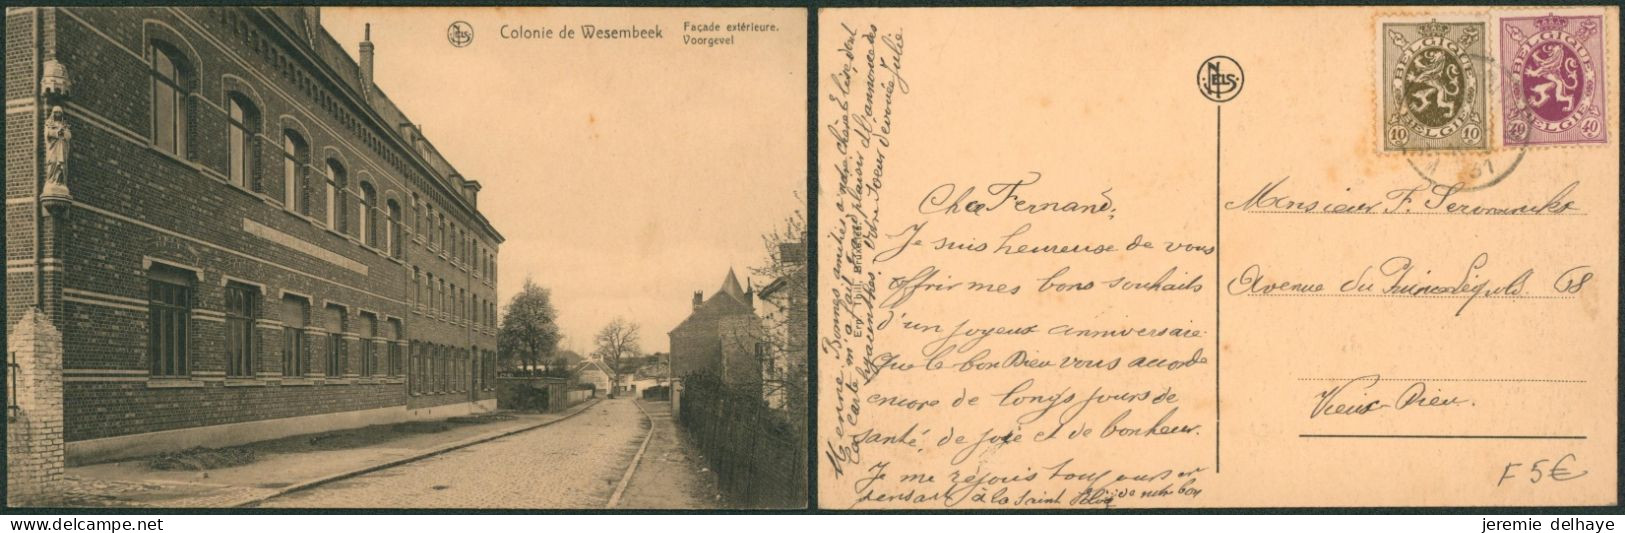 NELS
Colonie de Wesembeek
Façade extérieure.
Voorgevel
NELS
BELGIQUE
10 BELGIE 10
BELGIQUE
40 BELGIE 40
31
Cher Fernand,
Je suis heureuse de vous
offrir mes bons souhaits
d'un joyeux anniversaire
Que le bon Dieu vous accorde
encore de longs jours de
santé de joie et de bonheur.
Je me réjouis toujours en
pensant à la Saint de notre bon
Bonnes amitiés à ma chère Elise, dont
la carte m'a fait grand plaisir
Votre Soeur dévouée Julie
Monsieur F.
Avenue du Prince Léopold 58
Vieux-Dieu.
F 5€
jeremie delhaye